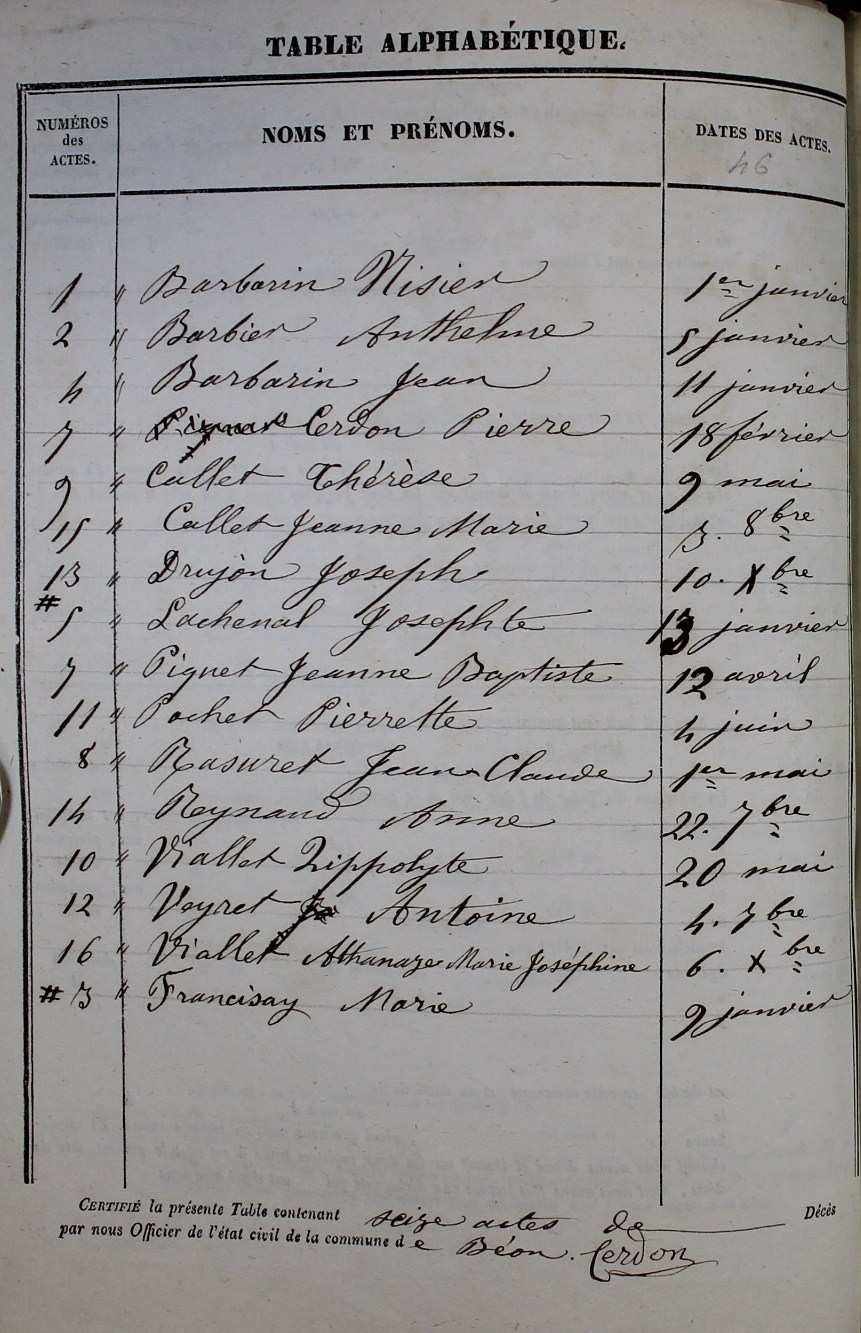 TABLE ALPHABÉTIQUE.
NUMÉROS des ACTES. NOMS ET PRÉNOMS. DATES DES ACTES.
46
1 " Barbarin Nisier 1er janvier
2 " Barbier Anthelme 5 janvier
4 " Barbarin Jean 11 janvier
7 " Cerdon Pierre 18 février
9 " Callet Thérèse 9 mai
15 " Callet Jeanne Marie 3. 8bre
13 " Drujon Joseph 10. Xbre
# 5 " Lachenal Josephte 13 janvier
7 " Piquet Jeanne Baptiste 12 avril
11 " Pochet Pierrette 4 juin
8 " Rasuret Jean-Claude 1er mai
14 " Reynaud Anne 22. 7bre
10 " Viallet Hippolyte 20 mai
12 " Veyret Antoine 4. 7bre
16 " Viallet Athanaze Marie Joséphine 6. Xbre
# 3 " Francisay Marie 9 janvier
CERTIFIÉ la présente Table contenant seize actes de Décès
par nous Officier de l'état civil de la commune de Béon. Cerdon